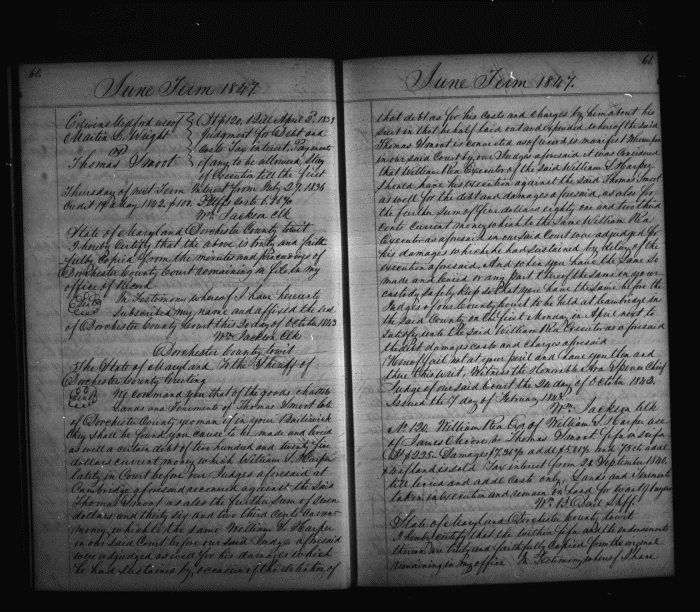 60.
June Term 1847.
Edwin Medford use of
Martin L. Wright
vs
Thomas Smoot
Judgment for Debt and
Costs Tax interest, Payments
if any to be allowed Stay
of Execution till the first
Thursday of next Term Interest from July 29. 1836
Wm Jackson Clk
State of Maryland Dorchester County towit
I hereby Certify that the above is truly and faith
fully Copied from the minutes and proceedings of
Dorchester County Court remaining on file in my
office of Record
In Testimony whereof I have hereunto
subscribed my name and affixed the seal
of Dorchester County Court this day of October 1843
Wm Jackson Clk
Dorchester County towit
The State of Maryland, To the Sheriff of
Dorchester County Greeting
We command you that of the goods, chattels
Lands and Tenements of Thomas Smoot late
of Dorchester County yeoman if in your Bailiwick
they shall be found you cause to be made and levied
as well a certain debt of two hundred and twenty five
dollars current money which William S. Harper
lately in Court before our Judges aforesaid at
Cambridge aforesaid recovered against the said
Thomas Smoot as also the further sum of seven
dollars and thirty six and two third cents current
money, which to the same William S. Harper
in our said Court before our said Judges aforesaid
were adjudged as well for his damages which
he had sustained by occasion of the detention of
61
June Term 1847.
that debt as for his costs and charges by him about his
suit in that behalf laid out and expended whereof the said
Thomas Smoot is convicted as of record is manifest Whereupon
in our said Court by our Judges aforesaid it was considered
that William Rea Executor of the said William S. Harper
should have his execution against the said Thomas Smoot
as well for the debt and damages aforesaid, as also for
the further sum of five dollars eighty one and two third
Cents Current money which to the same William Rea
Executor as aforesaid in our said Court were adjudged for
his damages which he has sustained by delay of the
execution aforesaid, And when you have the same so
made and levied or any part thereof the same in your
custody safely keep so that you have the same before the
Judges of our County Court to be held at Cambridge in
the said County on the first Monday in April next to
satisfy unto the said William Rea Executor as aforesaid
the debt damages costs and charges aforesaid
Hereof fail not at your peril and have you then and
there this writ. Witness the Honorable Ara Spence Chief
Judge of our said Court the 24 day of October 1842.
Issued the 7 day of February 1843.
Wm Jackson Clk
No 120. William Rea Exr of William S. Harper use
of James vs Thomas Smoot fi fa on scifa
Tax interest from 20 September 1840.
Lands and Tenements
taken in Execution and remain on hand for want of buyers
State of Maryland Dorchester County towit
I hereby certify that the within fi fa and the endorsements
thereon are truly and faithfully Copied from the original
remaining in my office In Testimony whereof I have